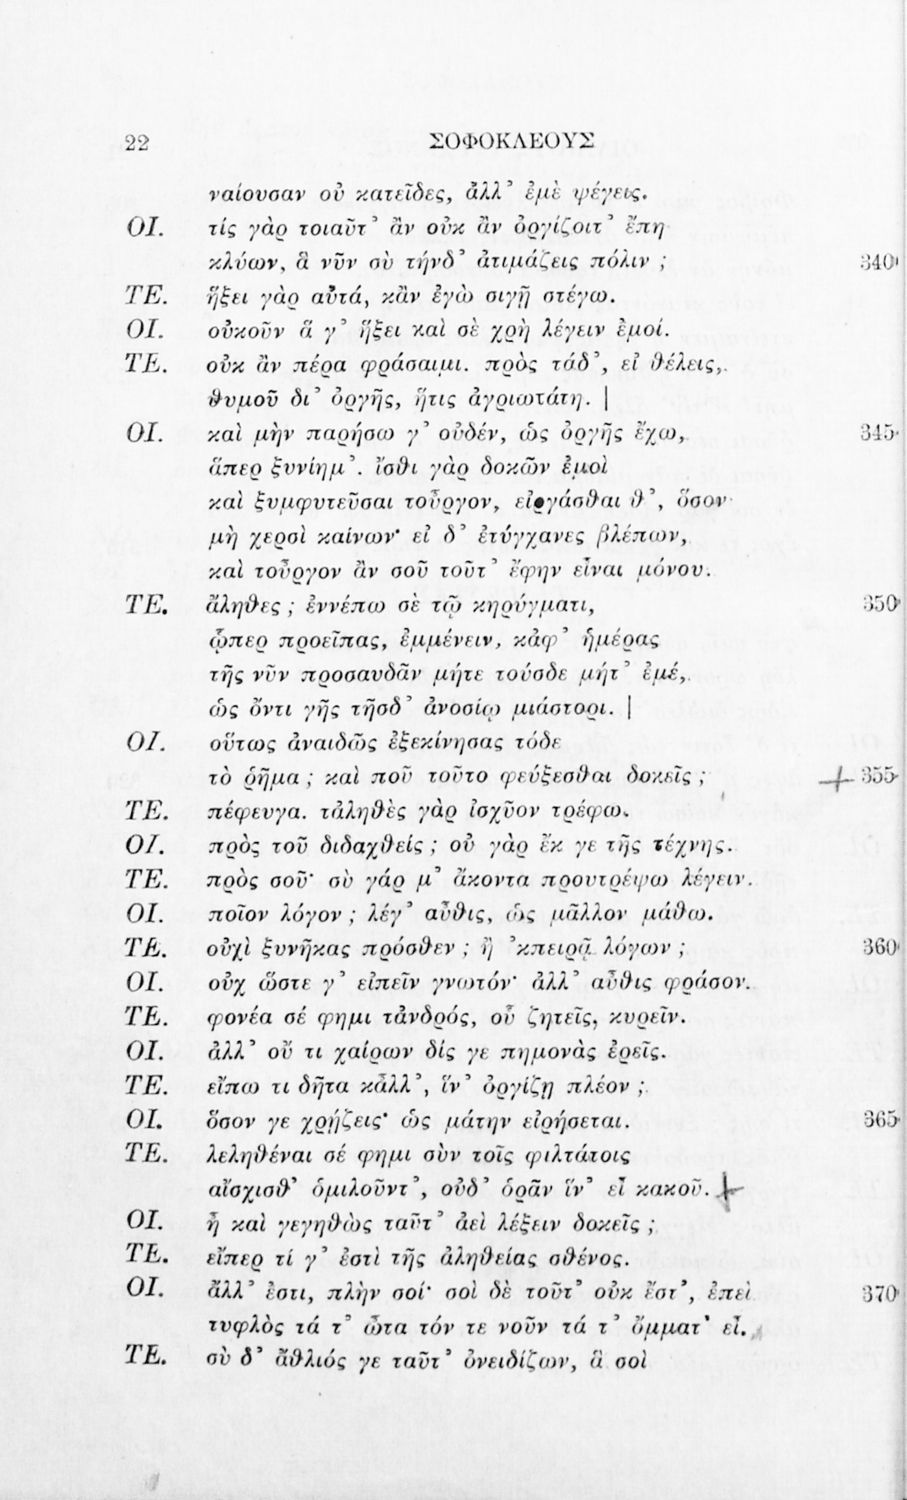 22 ΣΟΦΟΚΛΕΟΥΣ
ναίουσαν οὐ κατεῖδες, ἀλλ’ ἐμὲ ψέγεις.
ΟΙ. τίς γὰρ τοιαῦτ’ ἂν οὐκ ἂν ὀργίζοιτ’ ἔπη
κλύων, ἃ νῦν σὺ τήνδ’ ἀτιμάζεις πόλιν ; 340
ΤΕ. ἥξει γὰρ αὐτά, κἂν ἐγὼ σιγῇ στέγω.
ΟΙ. οὐκοῦν ἅ γ’ ἥξει καὶ σὲ χρὴ λέγειν ἐμοί.
ΤΕ. οὐκ ἂν πέρα φράσαιμι. πρὸς τάδ’, εἰ θέλεις,
θυμοῦ δι’ ὀργῆς, ἥτις ἀγριωτάτη. |
ΟΙ. καὶ μὴν παρήσω γ’ οὐδέν, ὡς ὀργῆς ἔχω, 345
ἅπερ ξυνίημ’. ἴσθι γὰρ δοκῶν ἐμοὶ
καὶ ξυμφυτεῦσαι τοὖργον, εἰργάσθαι θ’, ὅσον
μὴ χερσὶ καίνων· εἰ δ’ ἐτύγχανες βλέπων,
καὶ τοὖργον ἂν σοῦ τοῦτ’ ἔφην εἶναι μόνου.
ΤΕ. ἄληθες ; ἐννέπω σὲ τῷ κηρύγματι, 350
ᾧπερ προεῖπας, ἐμμένειν, κἀφ’ ἡμέρας
τῆς νῦν προσαυδᾶν μήτε τούσδε μήτ’ ἐμέ,
ὡς ὄντι γῆς τῆσδ’ ἀνοσίῳ μιάστορι. |
ΟΙ. οὕτως ἀναιδῶς ἐξεκίνησας τόδε
τὸ ῥῆμα ; καὶ ποῦ τοῦτο φεύξεσθαι δοκεῖς ; 355
ΤΕ. πέφευγα. τἀληθὲς γὰρ ἰσχῦον τρέφω.
ΟΙ. πρὸς τοῦ διδαχθείς ; οὐ γὰρ ἔκ γε τῆς τέχνης.
ΤΕ. πρὸς σοῦ· σὺ γάρ μ’ ἄκοντα προυτρέψω λέγειν.
ΟΙ. ποῖον λόγον ; λέγ’ αὖθις, ὡς μᾶλλον μάθω.
ΤΕ. οὐχὶ ξυνῆκας πρόσθεν ; ἢ ’κπειρᾷ λόγων ; 360
ΟΙ. οὐχ ὥστε γ’ εἰπεῖν γνωτόν· ἀλλ’ αὖθις φράσον.
ΤΕ. φονέα σέ φημι τἀνδρός, οὗ ζητεῖς, κυρεῖν.
ΟΙ. ἀλλ’ οὔ τι χαίρων δίς γε πημονὰς ἐρεῖς.
ΤΕ. εἴπω τι δῆτα κἄλλ’, ἵν’ ὀργίζῃ πλέον ;
ΟΙ. ὅσον γε χρῄζεις· ὡς μάτην εἰρήσεται. 365
ΤΕ. λεληθέναι σέ φημι σὺν τοῖς φιλτάτοις
αἴσχισθ’ ὁμιλοῦντ’, οὐδ’ ὁρᾶν ἵν’ εἶ κακοῦ.
ΟΙ. ἦ καὶ γεγηθὼς ταῦτ’ ἀεὶ λέξειν δοκεῖς ;
ΤΕ. εἴπερ τί γ’ ἐστὶ τῆς ἀληθείας σθένος.
ΟΙ. ἀλλ’ ἔστι, πλὴν σοί· σοὶ δὲ τοῦτ’ οὐκ ἔστ’, ἐπεὶ 370
τυφλὸς τά τ’ ὦτα τόν τε νοῦν τά τ’ ὄμματ’ εἶ.
ΤΕ. σὺ δ’ ἄθλιός γε ταῦτ’ ὀνειδίζων, ἃ σοὶ